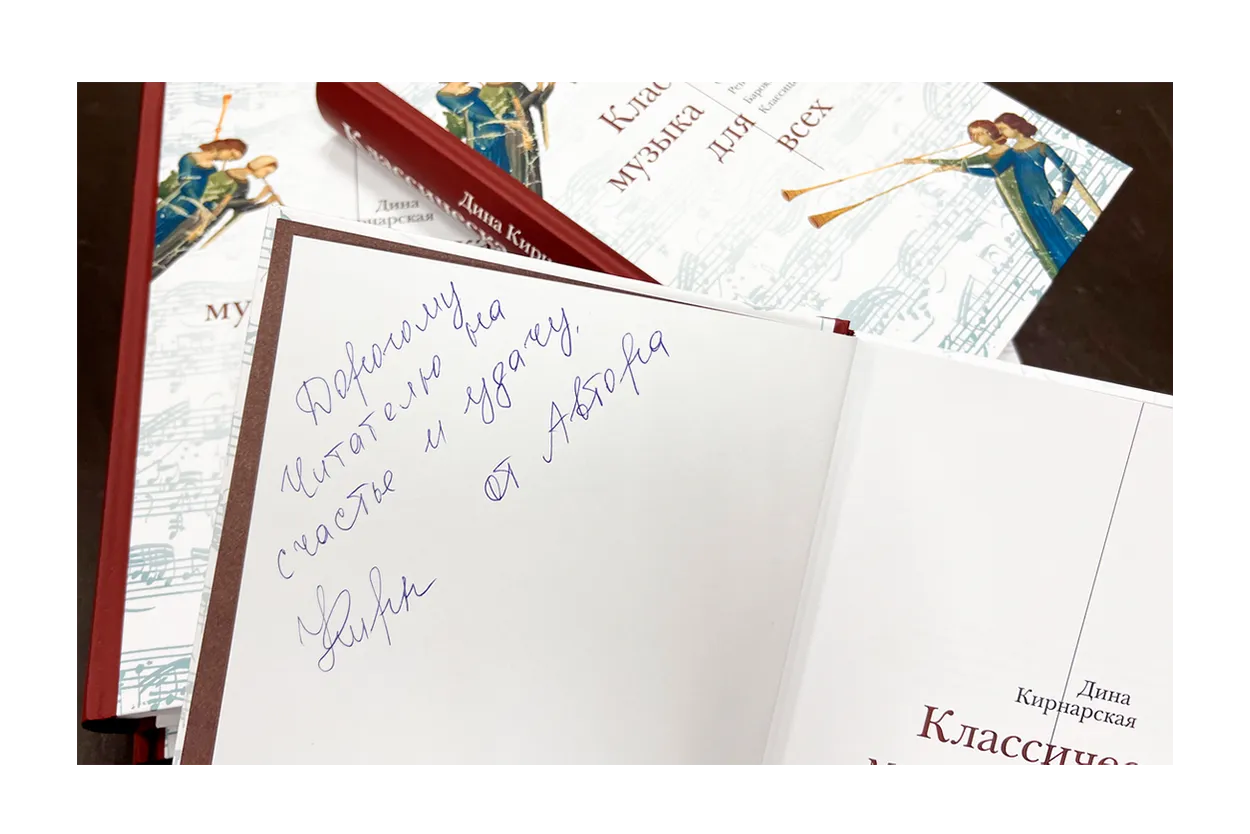 Клас
музыка
для
всех
Рен
Барок
Классици
Классическа
Дина Кирн
Дина
нарская
му
Дорогому
Читателю на
счастье и удачу.
от Автора
Кирн
Дина
Кирнарская
Классичес